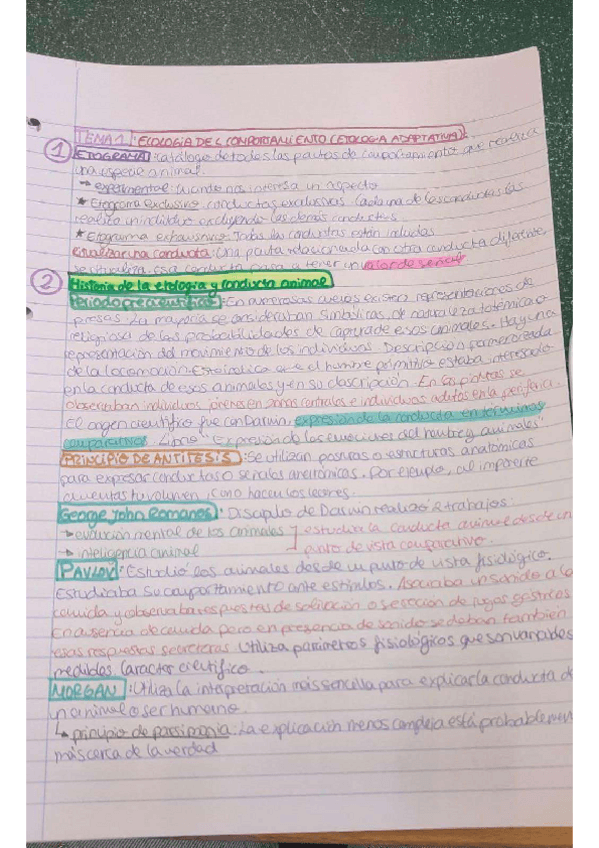 TEMA 1: ECOLOGÍA DEL COMPORTAMIENTO (ETOLOGIA ADAPTATIVA)
1 ETOGRAMA: catálogo de todas las pautas de comportamiento que realiza
una especie animal.
→ experimental: cuando nos interesa un aspecto
★ Etograma exclusivo: conductas exclusivas. Cada una de las conductas las
realiza un individuo excluyendo las demás conductas
★ Etograma exhaustivo: Todas las conductas están incluidas
Ritualizar una conducta: Una pauta relacionada con otra conducta diferente
se ritualiza. Esa conducta pasa a tener un valor de señal
2 Historia de la etología y conducta animal
Periodo precientífico: En numerosas cuevas existen representaciones de
presas. La mayoría se consideraban simbólicas, de naturaleza totémica o
religiosa de las probabilidades de captura de esos animales. Hay una
representación del movimiento de los individuos. Descripción pormenorizada
de la locomoción. Esto indica que el hombre primitivo estaba interesado
en la conducta de esos animales y en su descripción. En las pinturas se
observaban individuos jóvenes en zonas centrales e individuos adultos en la periferia.
El origen científico fue con Darwin, expresión de la conducta en términos
comparativos. Libro "Expresión de las emociones del hombre y animales"
PRINCIPIO DE ANTÍTESIS: Se utilizan posturas o estructuras anatómicas
para expresar conductas o señales antagónicas. Por ejemplo, al imponerte
aumentas tu volumen, como hacen los leones.
George John Romanes: Discípulo de Darwin realizó 2 trabajos:
→ evolución mental de los animales ] estudia la conducta animal desde un
→ inteligencia animal punto de vista comparativo.
PAVLOV: Estudió los animales desde un punto de vista fisiológico.
Estudiaba su comportamiento ante estímulos. Asociaba un sonido a la
comida y observaba respuestas de salivación o secreción de jugos gástricos
En ausencia de comida pero en presencia de sonido se daban también
esas respuestas secretoras. Utiliza parámetros fisiológicos que son variables
medibles. Carácter científico.
MORGAN: Utiliza la interpretación más sencilla para explicar la conducta de
un animal o ser humano.
↳ principio de parsimonia: La explicación menos compleja está probablemen
más cerca de la verdad